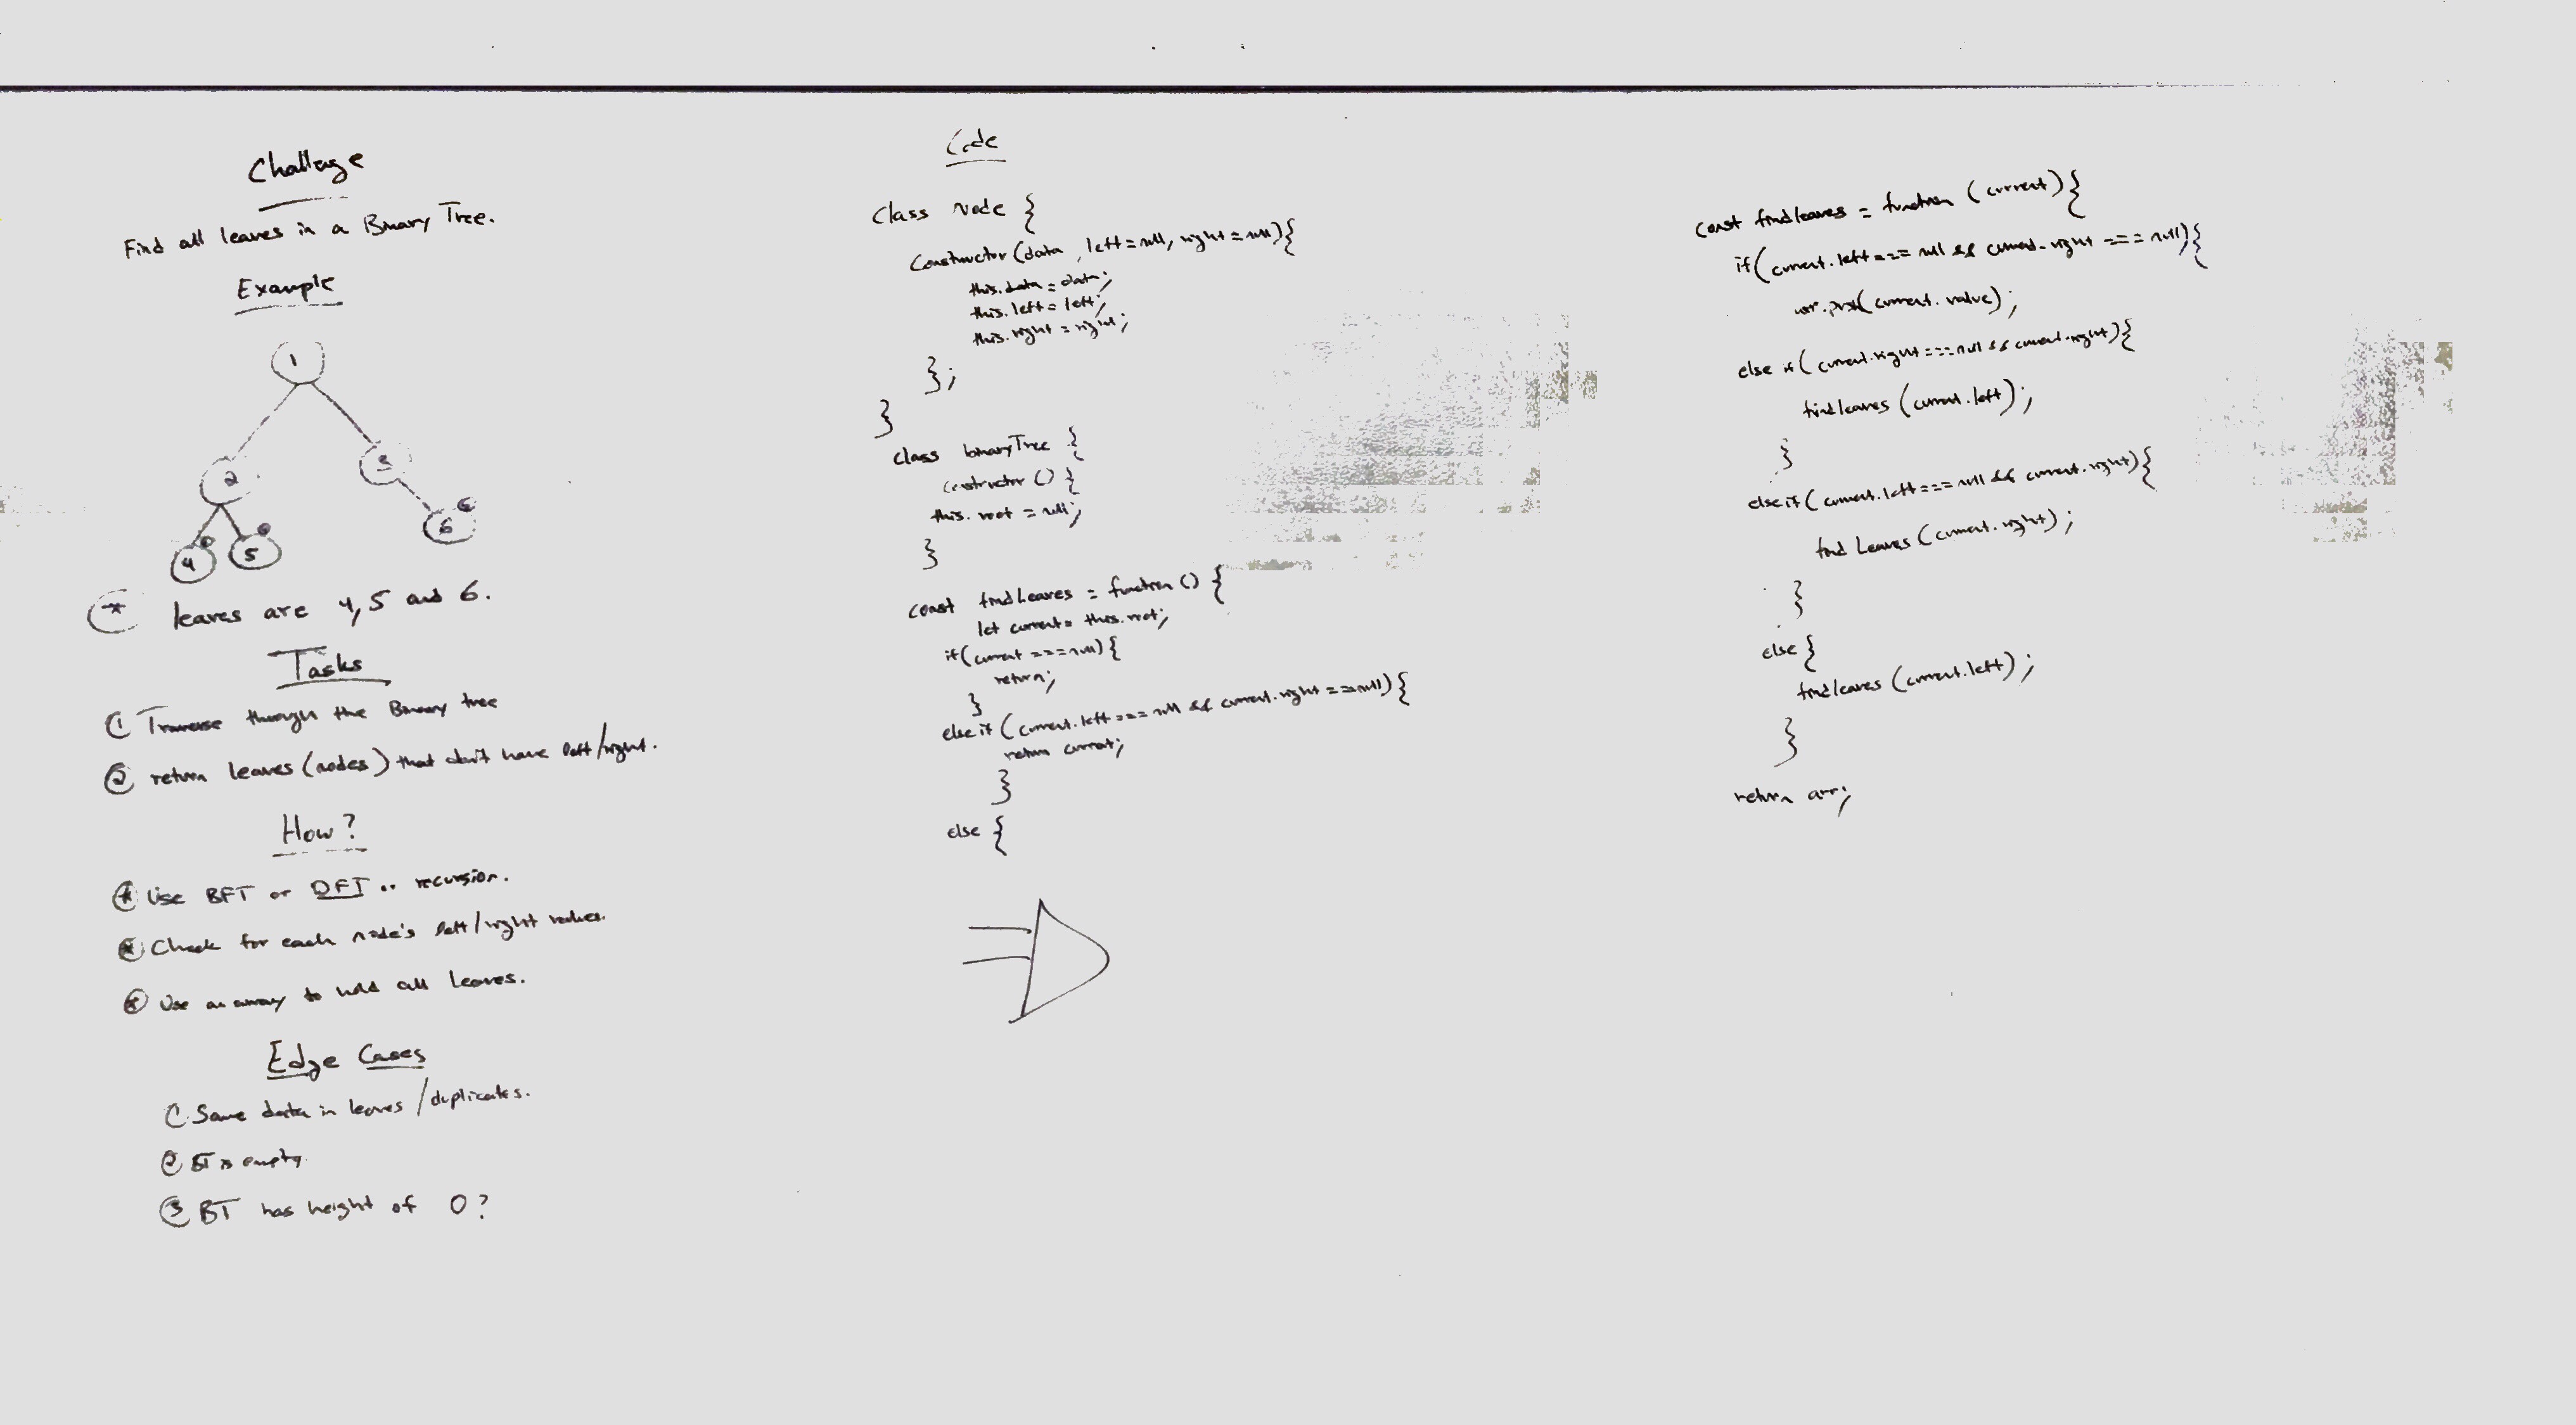 Challenge
Find all leaves in a Binary Tree.
Example
1
2
3
4
5
6
* leaves are 4, 5 and 6.
Tasks
1 Traverse through the Binary tree
2 return leaves (nodes) that don't have left/right.
How?
* Use BFT or DFT .. recursion.
* Check for each node's left/right values.
* Use an array to hold all leaves.
Edge Cases
1 Same data in leaves / duplicates.
2 BT is empty.
3 BT has height of 0?
Code
Class Node {
Constructor (data, left = null, right = null) {
this.data = data;
this.left = left;
this.right = right;
};
}
Class binaryTree {
constructor () {
this.root = null;
}
const findLeaves = function () {
let current = this.root;
if (current === null) {
return;
}
else if (current.left === null && current.right === null) {
return current;
}
else {
const findleaves = function (current) {
if (current.left === null && current.right === null) {
arr.push(current.value);
else if (current.right === null && current.right) {
findleaves (current.left);
}
else if (current.left === null && current.right) {
find Leaves (current.right);
}
else {
findleaves (current.left);
}
return arr;